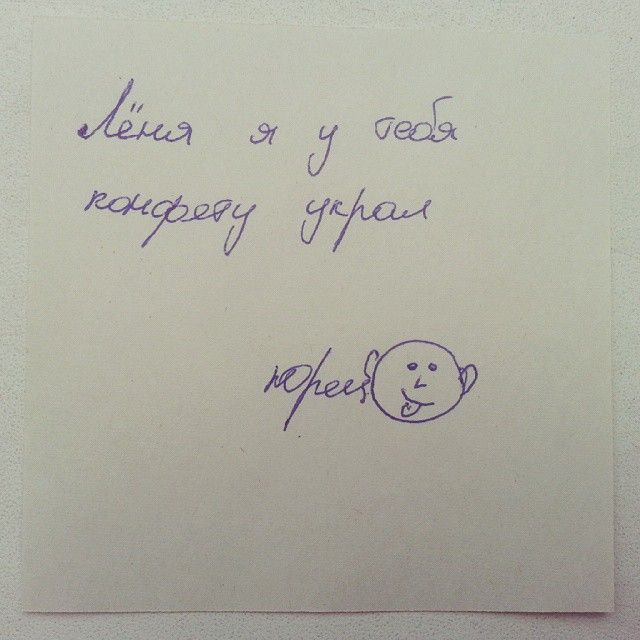 Лёня я у тебя
конфету украл
Юрец